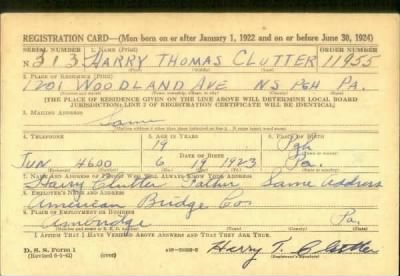 REGISTRATION CARD—(Men born on or after January 1, 1922 and on or before June 30, 1924)
SERIAL NUMBER 1. NAME (Print) ORDER NUMBER
N 313 HARRY THOMAS CLUTTER 11955
(First) (Middle) (Last)
2. PLACE OF RESIDENCE (Print)
1201 WOODLAND AVE. N S PGH PA.
(THE PLACE OF RESIDENCE GIVEN ON THE LINE ABOVE WILL DETERMINE LOCAL BOARD
JURISDICTION; LINE 2 OF REGISTRATION CERTIFICATE WILL BE IDENTICAL)
3. MAILING ADDRESS
Same
4. TELEPHONE 5. AGE IN YEARS 6. PLACE OF BIRTH
19 Pgh
DATE OF BIRTH
4600 6 19 1923 Pa.
7. NAME AND ADDRESS OF PERSON WHO WILL ALWAYS KNOW YOUR ADDRESS
Harry Clutter Father Same Address
8. EMPLOYER'S NAME AND ADDRESS
American Bridge Co.
9. PLACE OF EMPLOYMENT OR BUSINESS
Ambridge Pa.
I AFFIRM THAT I HAVE VERIFIED ABOVE ANSWERS AND THAT THEY ARE TRUE.
D. S. S. Form 1
(Revised 6-9-41) (over) Harry T. Clutter
(Registrant's signature)